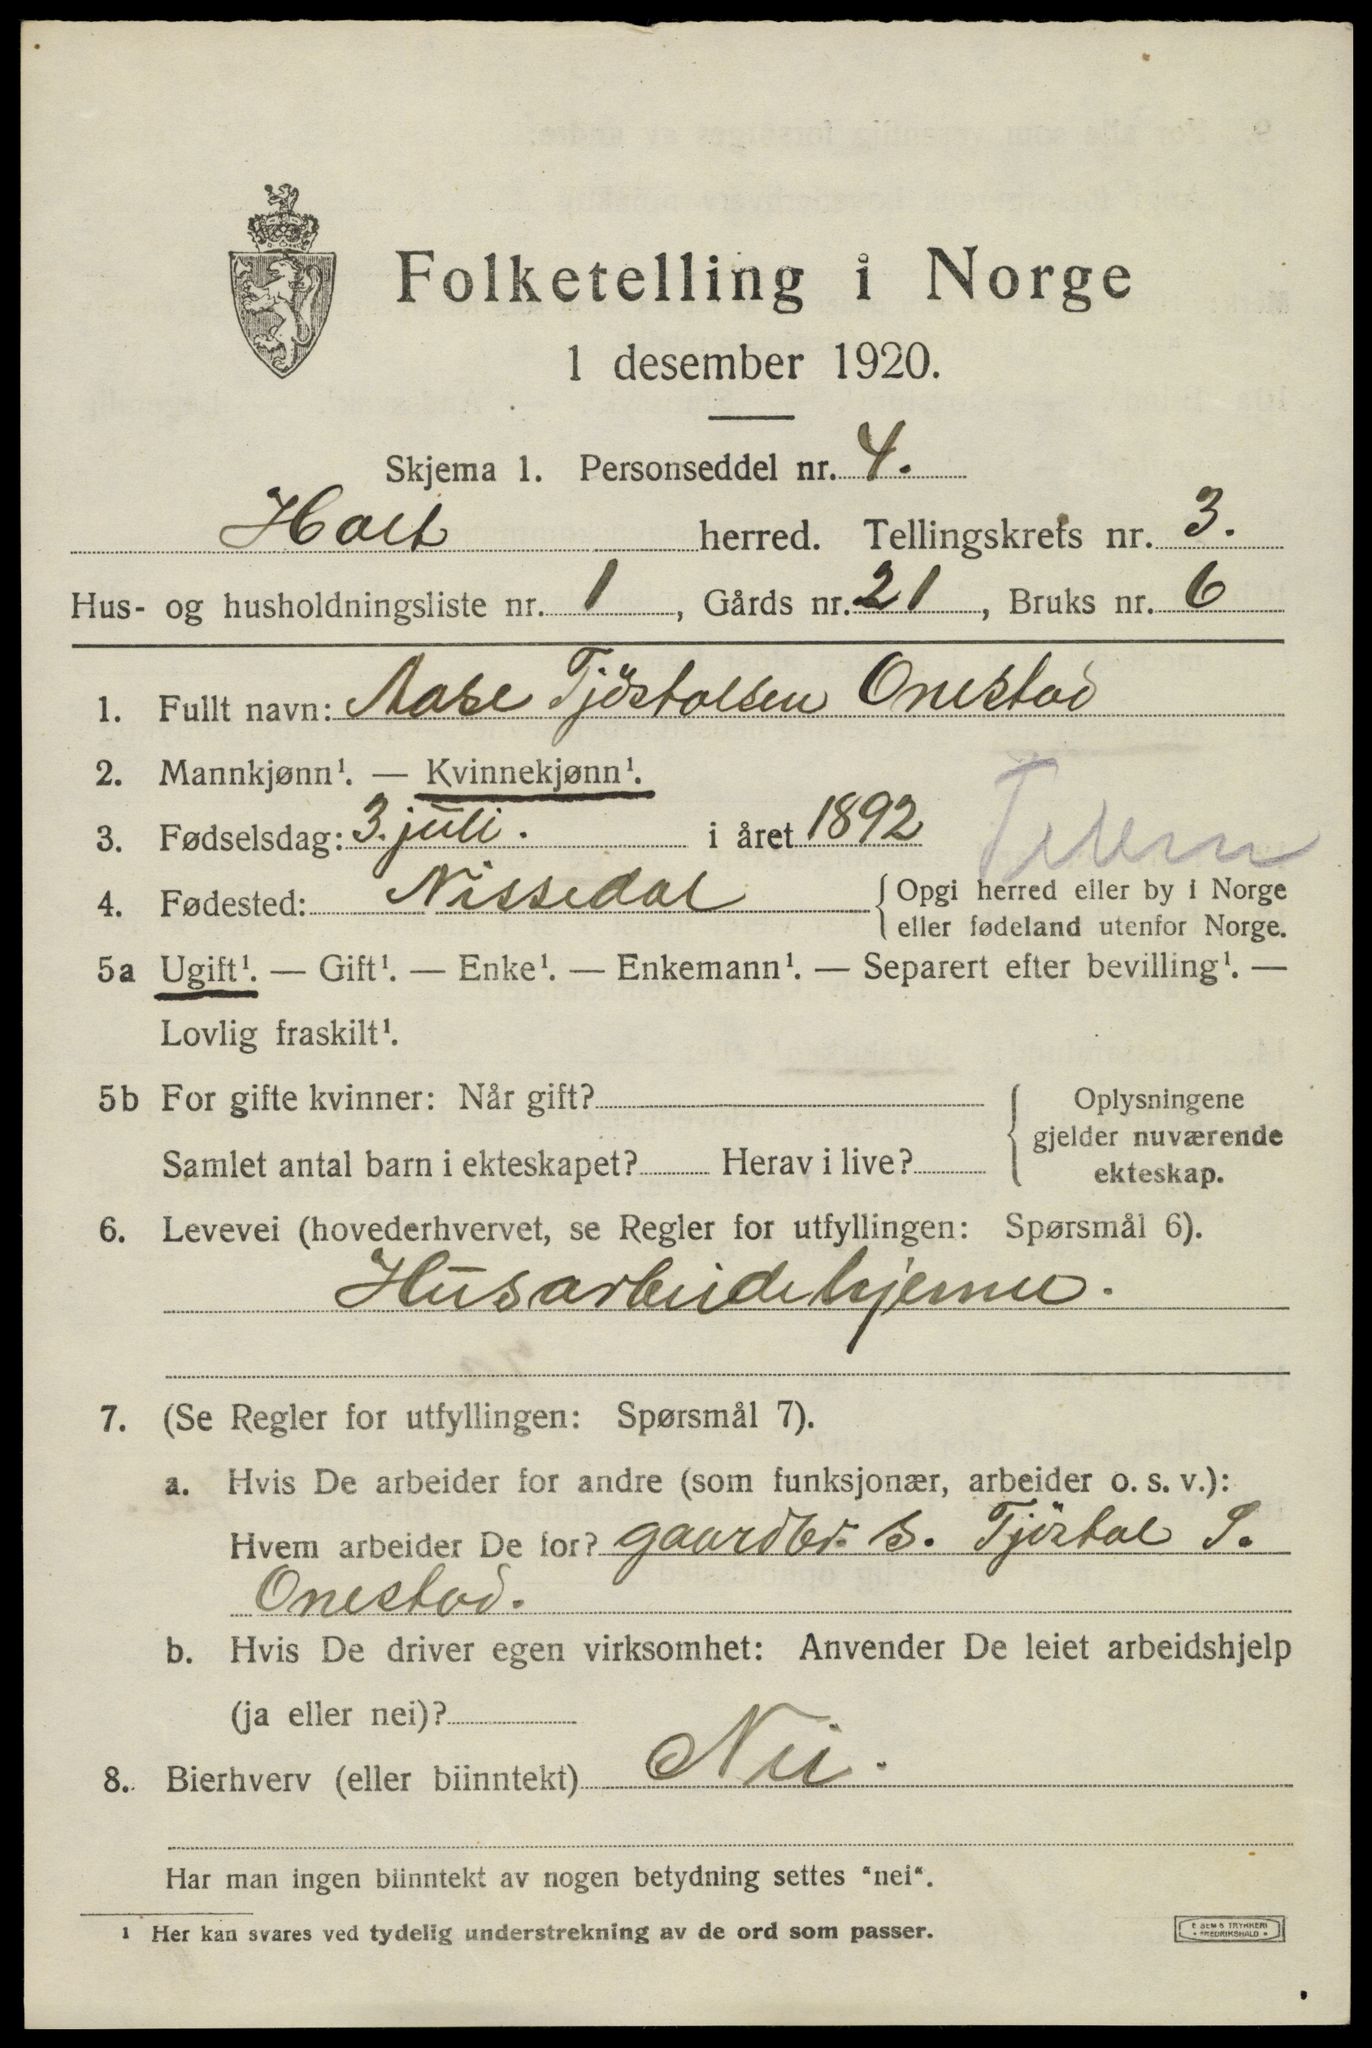 Folketelling i Norge
1 desember 1920.
Skjema 1. Personseddel nr. 4.
Holt herred. Tellingskrets nr. 3.
Hus- og husholdningsliste nr. 1, Gårds nr. 21, Bruks nr. 6
1. Fullt navn: Aase Tjöstolsen Onestad
2. Mannkjønn¹. — Kvinnekjønn¹.
3. Fødselsdag: 3. juli. i året 1892
Telem
4. Fødested: Nissedal {Opgi herred eller by i Norge
eller fødeland utenfor Norge.
5a Ugift¹. — Gift¹. — Enke¹. — Enkemann¹. — Separert efter bevilling¹. —
Lovlig fraskilt¹.
5b For gifte kvinner: Når gift? Oplysningene
gjelder nuværende
Samlet antal barn i ekteskapet? Herav i live? ekteskap.
6. Levevei (hovederhvervet, se Regler for utfyllingen: Spørsmål 6).
Husarbeide hjemme.
7. (Se Regler for utfyllingen: Spørsmål 7).
a. Hvis De arbeider for andre (som funksjonær, arbeider o. s. v.):
Hvem arbeider De for? gaardbr. s. Tjöstol S.
Onestad.
b. Hvis De driver egen virksomhet: Anvender De leiet arbeidshjelp
(ja eller nei)?
8. Bierhverv (eller biinntekt) Nei.
Har man ingen biinntekt av nogen betydning settes "nei".
¹ Her kan svares ved tydelig understrekning av de ord som passer.
E SEMS TRYKKERI
FREDRIKSHALD